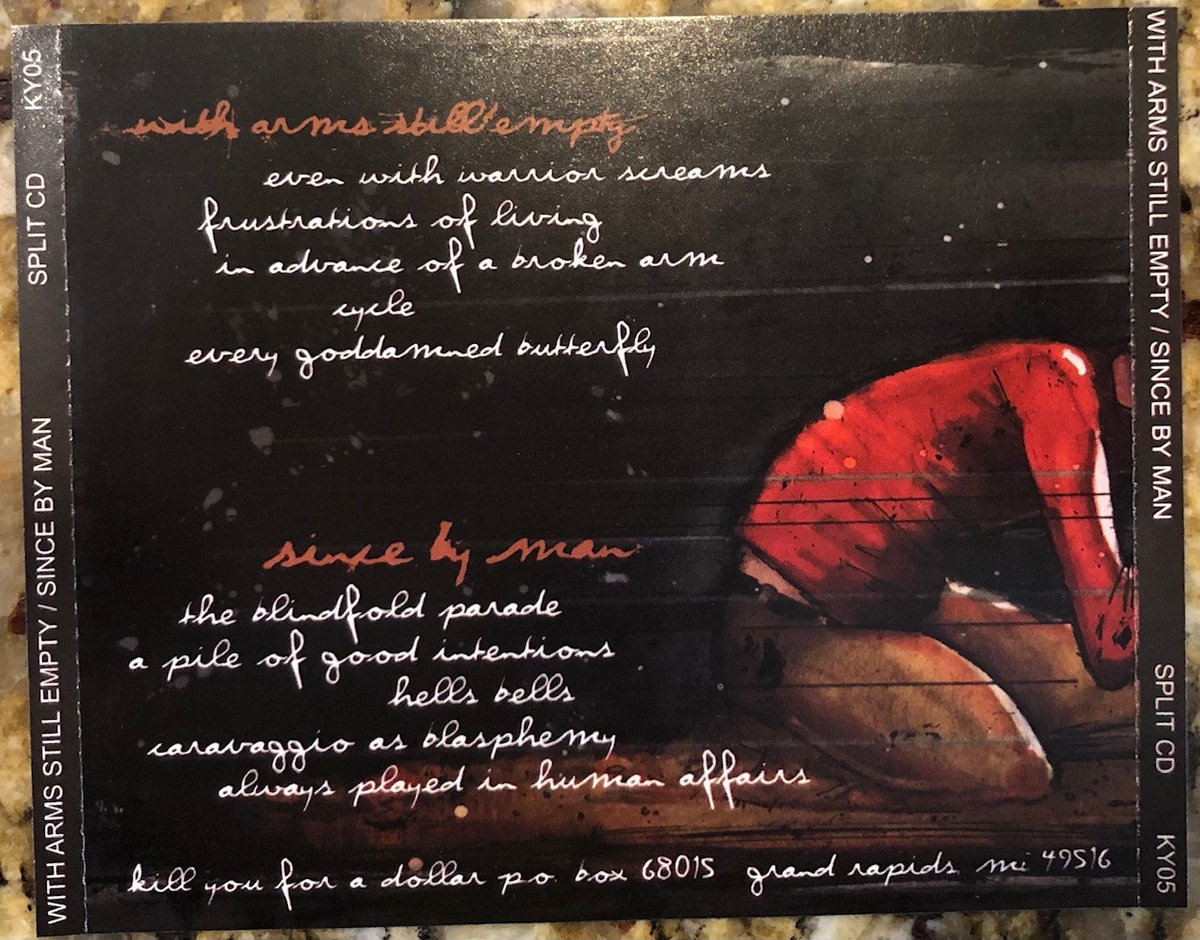 WITH ARMS STILL EMPTY / SINCE BY MAN SPLIT CD KY05
with arms still empty
even with warrior screams
frustrations of living
in advance of a broken arm
cycle
every goddamned butterfly
since by man
the blindfold parade
a pile of good intentions
hells bells
caravaggio as blasphemy
always played in human affairs
kill you for a dollar p.o. box 68015 grand rapids mi 49516
WITH ARMS STILL EMPTY / SINCE BY MAN SPLIT CD KY05